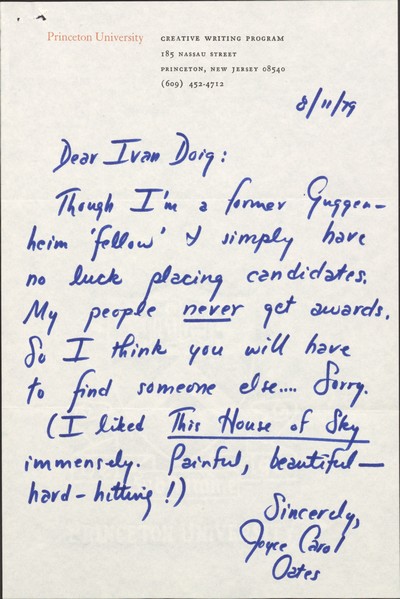 Princeton University
CREATIVE WRITING PROGRAM
185 NASSAU STREET
PRINCETON, NEW JERSEY 08540
(609) 452-4712
8/11/79
Dear Ivan Doig:
Though I'm a former Guggen-
heim 'fellow' I simply have
no luck placing candidates.
My people never get awards.
So I think you will have
to find someone else.... Sorry.
(I liked This House of Sky
immensely. Painful, beautiful—
hard-hitting!)
Sincerely,
Joyce Carol
Oates